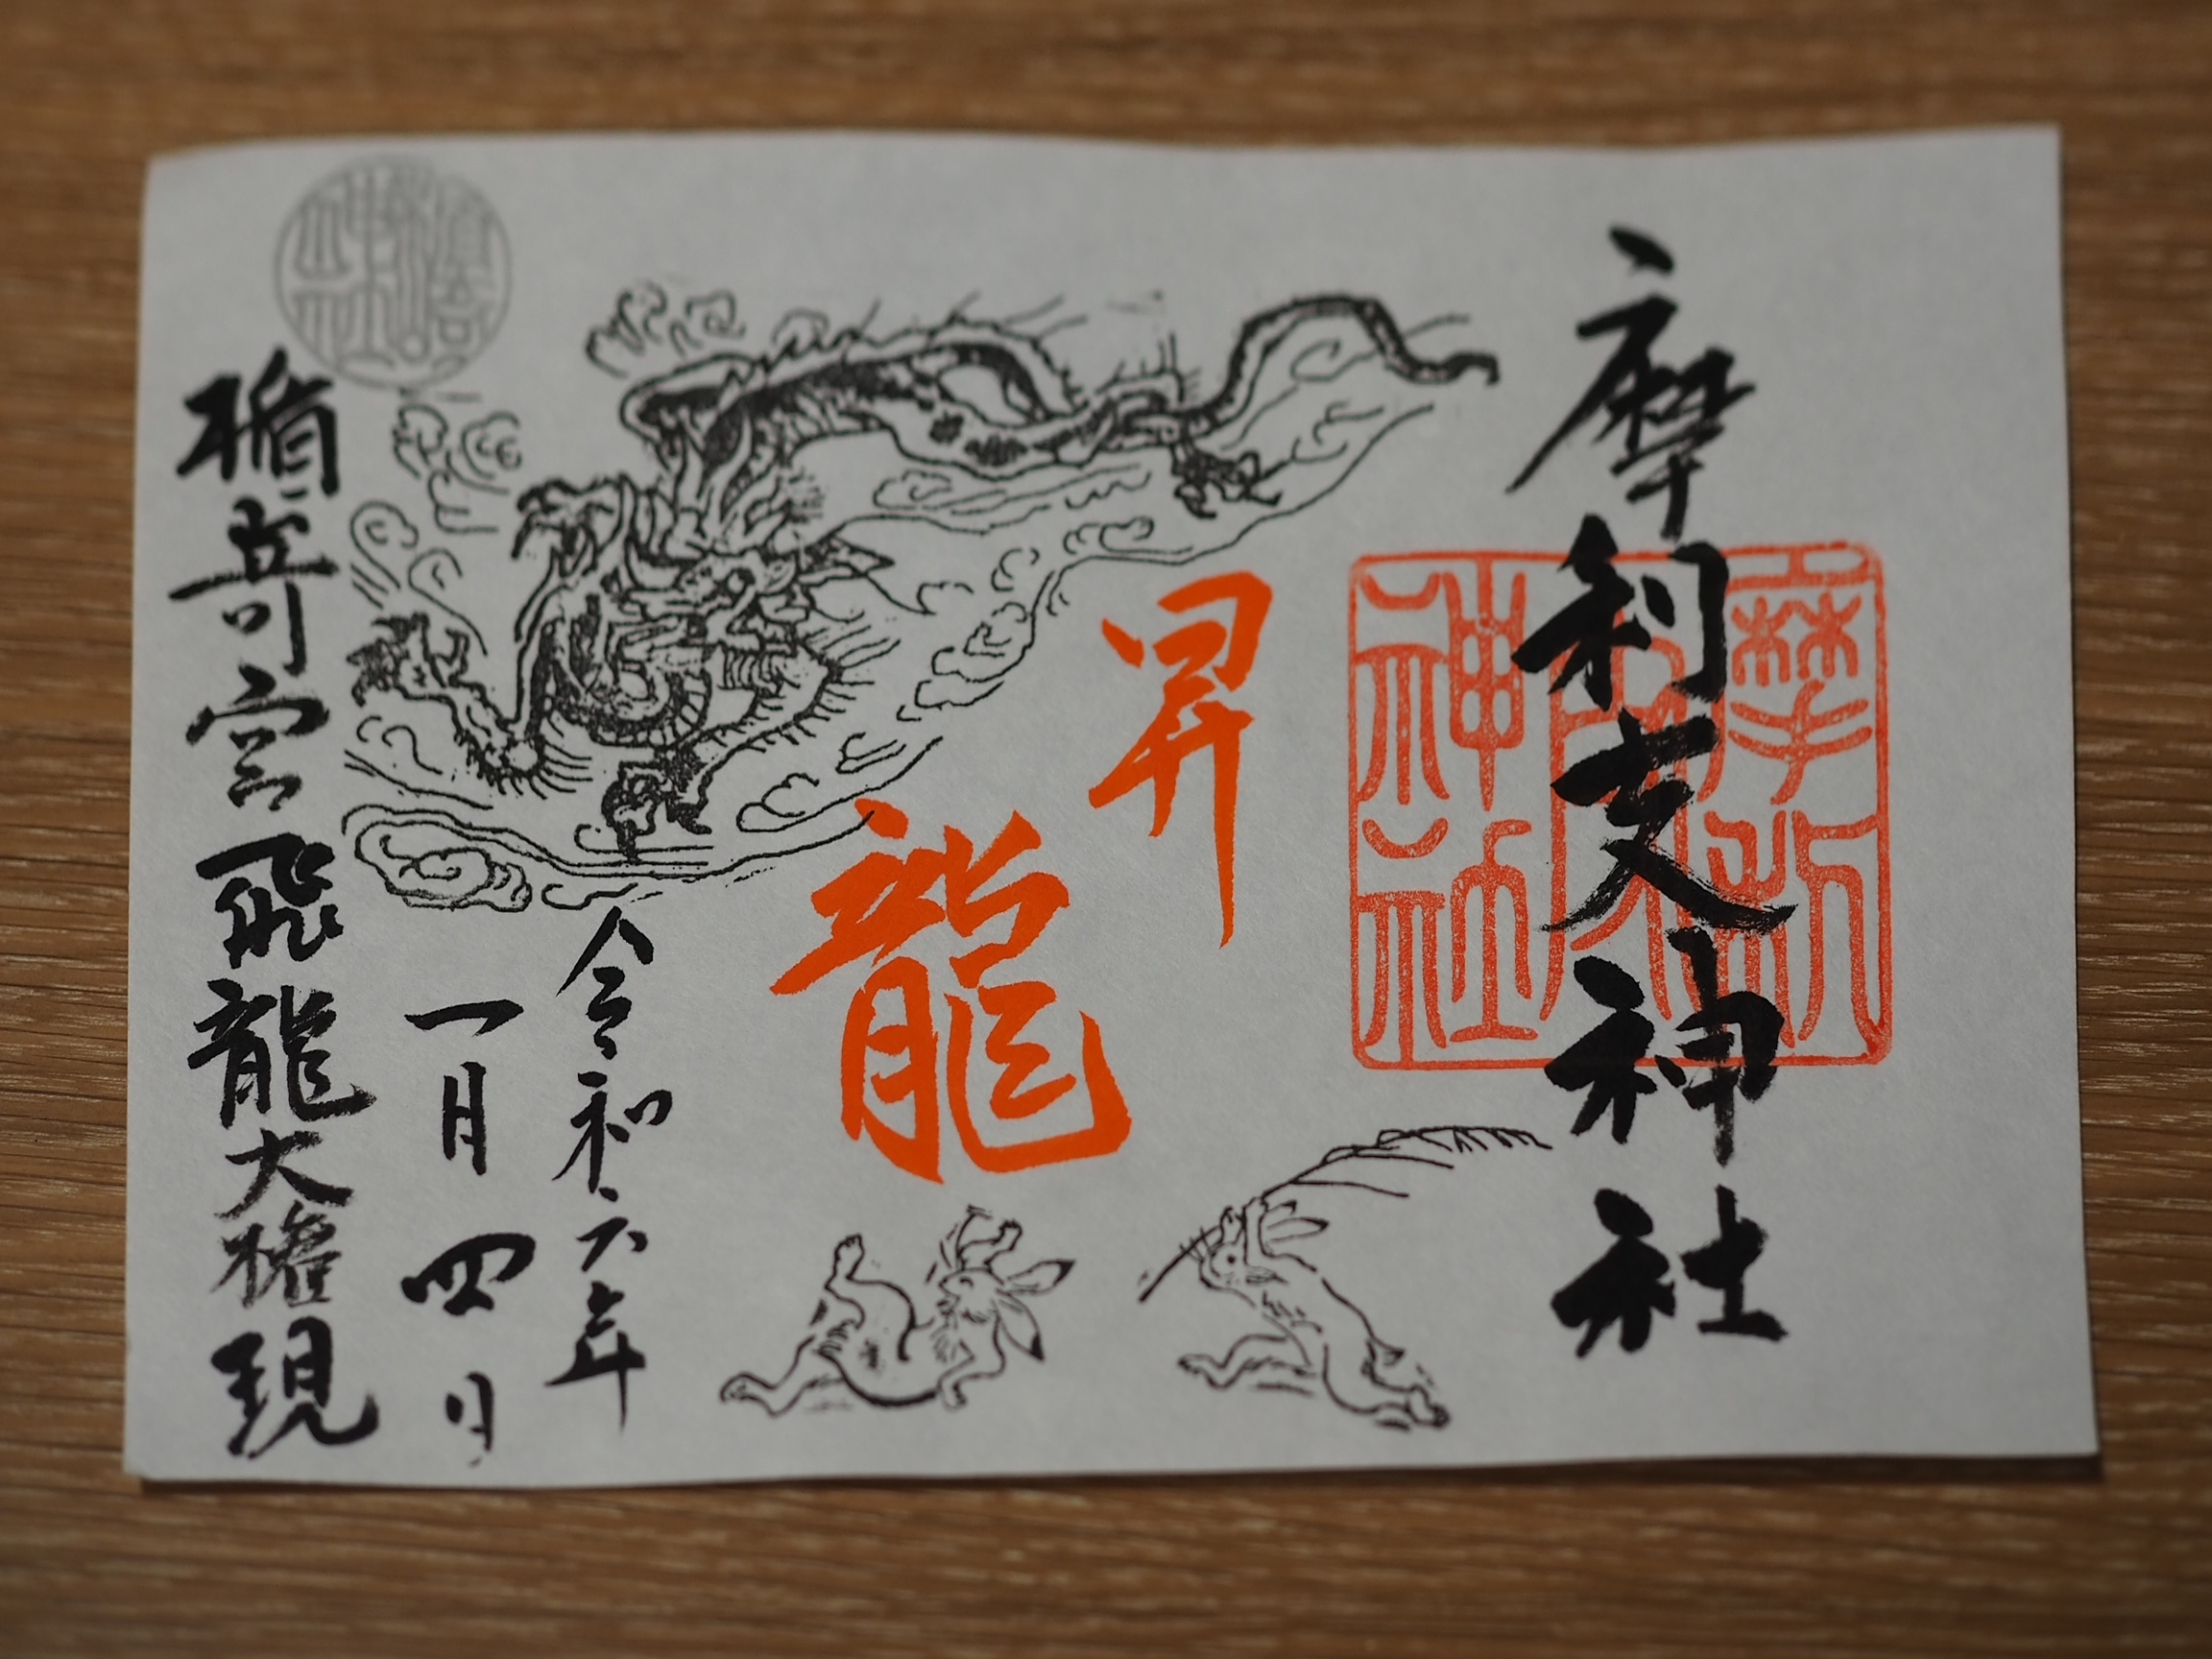 摩利支神社
摩利支神社
昇
龍
令和六年
一月四日
楯嵜宮飛龍大権現